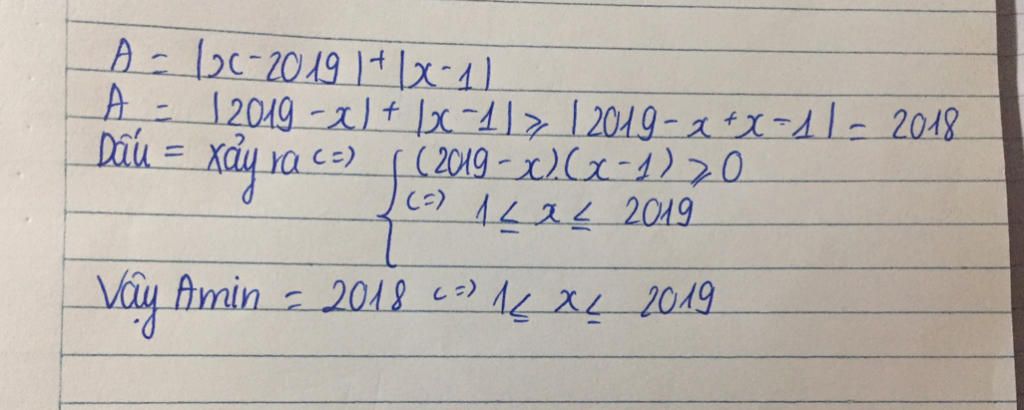 A = |x - 2019| + |x - 1|
A = |2019 - x| + |x - 1| ⩾ |2019 - x + x - 1| = 2018
Dấu = xảy ra (=) { (2019 - x).(x - 1) ⩾ 0
(=) 1 ≤ x ≤ 2019
Vậy Amin = 2018 (=) 1 ≤ x ≤ 2019